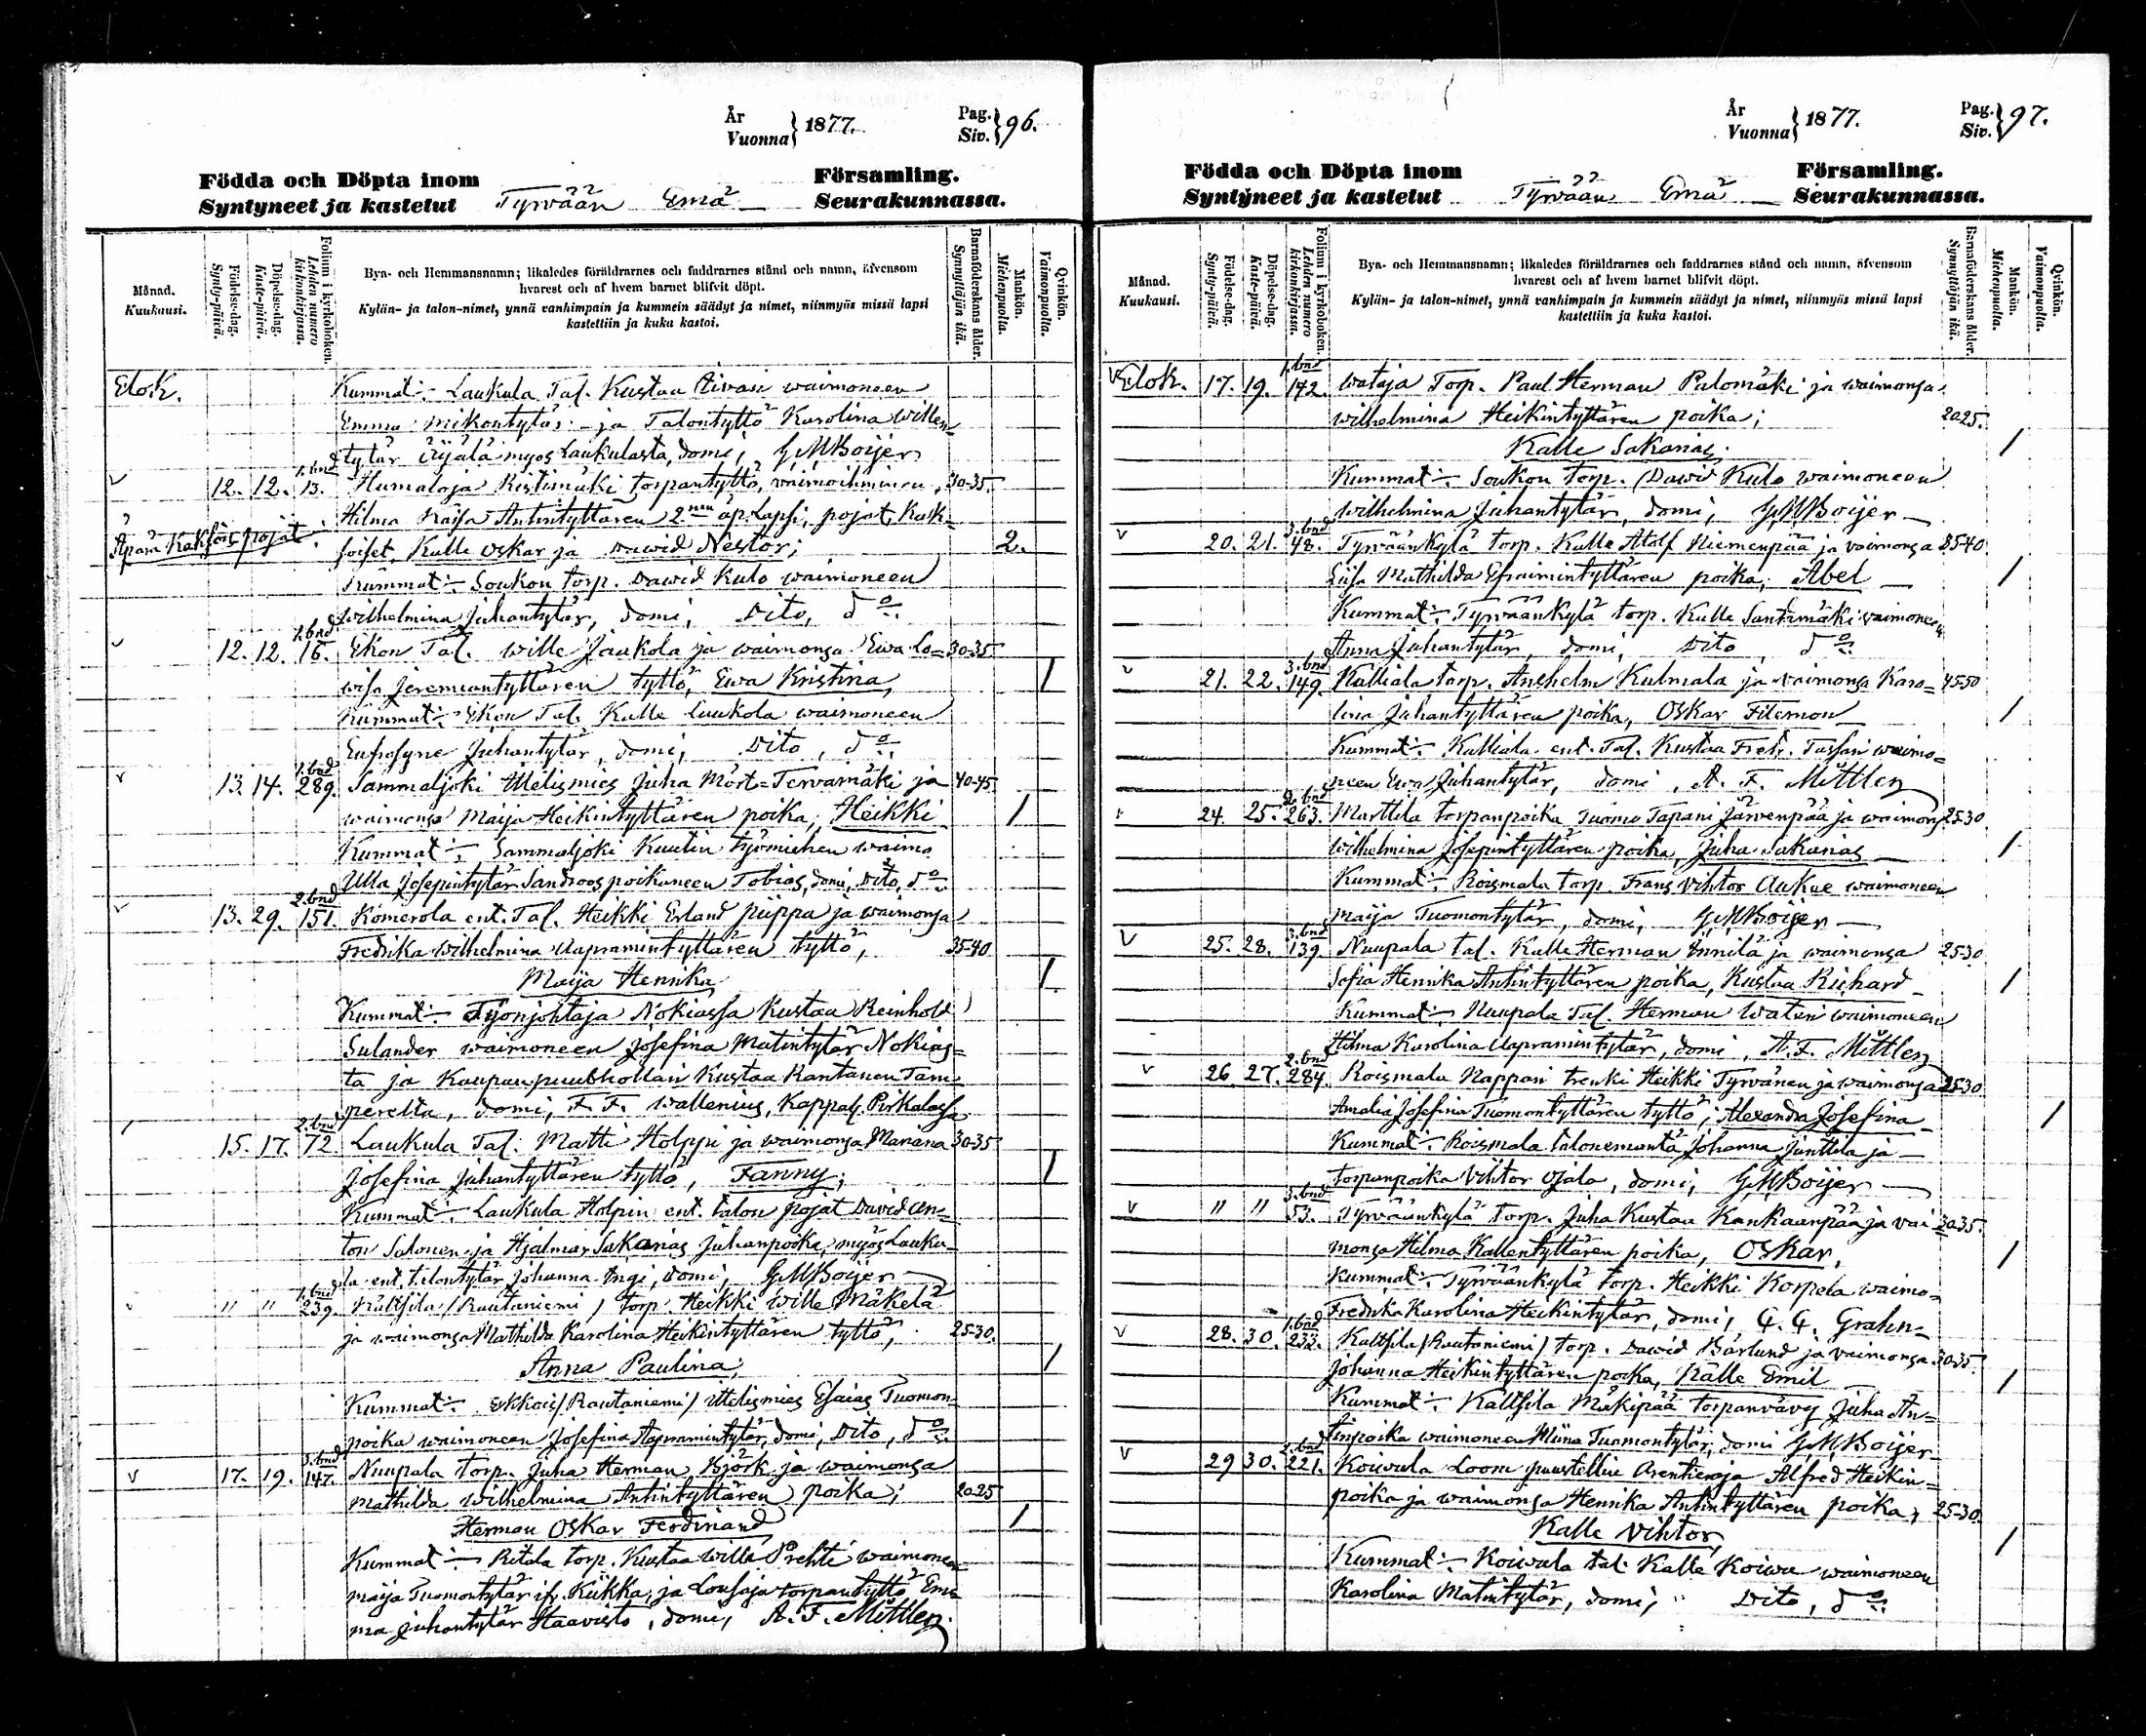 År
Vuonna } 1877.
Pag.
Siv. } 96.
Födda och Döpta inom
Syntyneet ja kastetut
Tyrvään Emä
Församling.
Seurakunnassa.
Månad.
Kuukausi.
Födelse-dag.
Synty-päivä.
Döpelse-dag.
Kaste-päivä.
Folium i kyrkoboken.
Lehden numero
kirkonkirjassa.
Bya- och Hemmansnamn; likaledes föräldrarnes och faddrarnes stånd och namn, äfvensom
hvarest och af hvem barnet blifvit döpt.
Kylän- ja talon-nimet, ynnä vanhimpain ja kummein säädyt ja nimet, niinmyös missä lapsi
kastettiin ja kuka kastoi.
Barnaföderskans ålder.
Synnyttäjän ikä.
Mankön.
Miehenpuolta.
Qvinkön.
Vaimonpuolta.
Elok. Kummat:- Laukula Tal. Kustaa waimoneen
Emma Mikontytär - ja Talontyttö Karolina Willen-
tytär Äijälä myös Laukulasta, domi, G M Boijer
v 12. 12. 1. bnd 13. Humaloja Ristimäki torpantyttö, vaimoihminen, 30-35.
Hilma Kaisa Antintyttären 2nen äp. Lapsi, pojat, kak-
Äpärä Kaksois pojat. soiset, Kalle Oskar ja Dawid Nestor; 2.
Kummat:- Soukon torp. Dawid Kulo waimoneen
Wilhelmina Juhantytär, domi, Dito, do
v 12. 12. 1. bnd 16. Ekon Tal. Wille Jaukola ja waimonsa Ewa Lo- 30-35
wisa Jeremiantyttären tyttö, Ewa Kristina, 1
Kummat:- Ekon Tal. Kalle Luukola waimoneen
Eufrosyne Juhantytär, domi, Dito, do
v 13. 14. 1. bnd 289. Sammaljoki Itellismies Juha Mört-Tervamäki ja 40-45
waimonsa Maija Heikintyttären poika, Heikki 1
Kummat:- Sammaljoki Kuutin työmiehen waimo
Ulla Josepintytär Sandroos poikaneen Tobias, domi, Dito, do
v 13. 29. 2. bnd 151. Komerola ent. Tal. Heikki Erland Piippa ja waimonsa
Fredrika Wilhelmina Aapramintyttären tyttö, 35-40
Maija Henrika 1
Kummat:- Työnjohtaja Nokiassa Kustaa Reinhold
Sulander waimoneen Josefina Matintytär Nokias-
ta ja Kaupanpuukhollari Kustaa Rantanen Tam-
perelta, domi, F. F. Wallenius, Kappal. Pirkalassa
15. 17. 2. bnd 72 Laukula Tal. Matti Holppi ja waimonsa Mariana 30-35
Josefina Juhantyttären tyttö, Fanny; 1
Kummat:- Laukula Holpin ent. talon pojat David An-
ton Salonen ja Hjalmar Sakarias Juhanpoika, myös Lauku-
la ent. talontytär Johanna Ingi, domi, G M Boijer
v " " 1. bnd 239. Kaltsila /Rautaniemi/ torp. Heikki Wille Mäkelä
ja waimonsa Mathilda Karolina Heikintyttären tyttö, 25-30.
Anna Paulina, 1
Kummat:- Ekkoin /Rautaniemi/ Itellismies Esaias Tuomon-
poika waimoneen Josefina Aapramintytär, domi, Dito, do
v 17. 19. 3. bnd 147. Nuupala torp. Juha Herman Björk ja waimonsa
Mathilda Wilhelmina Antintyttären poika; 20-25
Herman Oskar Ferdinand 1
Kummat:- Ritala torp. Kustaa Wille Prehti waimoneen
Maija Tuomontytär Kiikka, ja Lousaja torpantyttö Em-
ma Juhantytär Haavisto, domi, A. F. Mittler
År
Vuonna } 1877.
Pag.
Siv. } 97.
Födda och Döpta inom
Syntyneet ja kastetut
Tyrvään Emä
Församling.
Seurakunnassa.
Månad.
Kuukausi.
Födelse-dag.
Synty-päivä.
Döpelse-dag.
Kaste-päivä.
Folium i kyrkoboken.
Lehden numero
kirkonkirjassa.
Bya- och Hemmansnamn; likaledes föräldrarnes och faddrarnes stånd och namn, äfvensom
hvarest och af hvem barnet blifvit döpt.
Kylän- ja talon-nimet, ynnä vanhimpain ja kummein säädyt ja nimet, niinmyös missä lapsi
kastettiin ja kuka kastoi.
Barnaföderskans ålder.
Synnyttäjän ikä.
Mankön.
Miehenpuolta.
Qvinkön.
Vaimonpuolta.
v Elok. 17. 19. 1. bnd 142. Wataja Torp. Paul Herman Palomäki ja waimonsa
Wilhelmina Heikintyttären poika; 20-25.
Kalle Sakarias. 1
Kummat:- Soukon torp. Dawid Kulo waimoneen
Wilhelmina Juhantytär, domi, G M Boijer
v 20. 21. 3. bnd 48. Tyrväänkylä torp. Kalle Adolf Niemenpää ja vaimonsa 35-40
Liisa Mathilda Efraimintyttären poika, Abel 1
Kummat:- Tyrväänkylä torp. Kalle Santamäki vaimoneen
Anna Juhantytär, domi, Dito, do
v 21. 22. 3. bnd 149. Kalliala torp. Anshelm Kulmala ja vaimonsa Karo- 45-50
lina Juhantyttären poika, Oskar Filemon 1
Kummat:- Kalliala ent. Tal. Kustaa Fredr. Tassari waimo-
neen Ewa Juhantytär, domi, A. F. Mittler
v 24. 25. 2. bnd 263. Marttila torpanpoika Tuomo Tapani Järvenpää ja waimons. 25-30
Wilhelmina Josepintyttären poika, Juha Sakarias 1
Kummat:- Roismala torp. Frans Vihtor Aukue waimoneen
Maija Tuomontytär, domi, G M Boijer
v 25. 28. 3. bnd 139. Nuupala tal. Kalle Herman Ennilä ja waimonsa 25-30
Sofia Henrika Antintyttären poika, Kustaa Richard 1
Kummat:- Nuupala Tal. Herman Watin waimoneen
Hilma Karolina Aapramintytär, domi, A. F. Mittler
v 26. 27. 2. bnd 284. Roismala Nappari trenki Heikki Tyrvänen ja waimonsa 25-30
Amalia Josefina Tuomontyttären tyttö, Alexandra Josefina 1
Kummat:- Roismala talonemäntä Johanna Junttila ja
torpanpoika Vihtor Ojala, domi, G M Boijer
v " " 3. bnd 53. Tyrväänkylä torp. Juha Kustaa Kankaanpää ja vai- 30-35.
monsa Hilma Kallentyttären poika, Oskar, 1
Kummat:- Tyrväänkylä torp. Heikki Korpela waimo-
Fredrika Karolina Heikintytär, domi, G. G. Grahn
v 28. 30. 1. bnd 233. Kaltsila /Rautaniemi/ torp. Dawid Bärlund ja vaimonsa 30-35
Johanna Heikintyttären poika, Kalle Emil 1
Kummat:- Kaltsila Mäkipää torpanvävy Juha An-
tinpoika waimoneen Miina Tuomontytär, domi G M Boijer
v 29 30. 2. bnd 221. Koivula Loom puustellin Arentieraja Alfred Heikin-
poika ja waimonsa Henrika Antintyttären poika, 25-30.
Kalle Vihtor, 1
Kummat:- Koivula tal. Kalle Koiwu waimoneen
Karolina Matintytär, domi, Dito, do